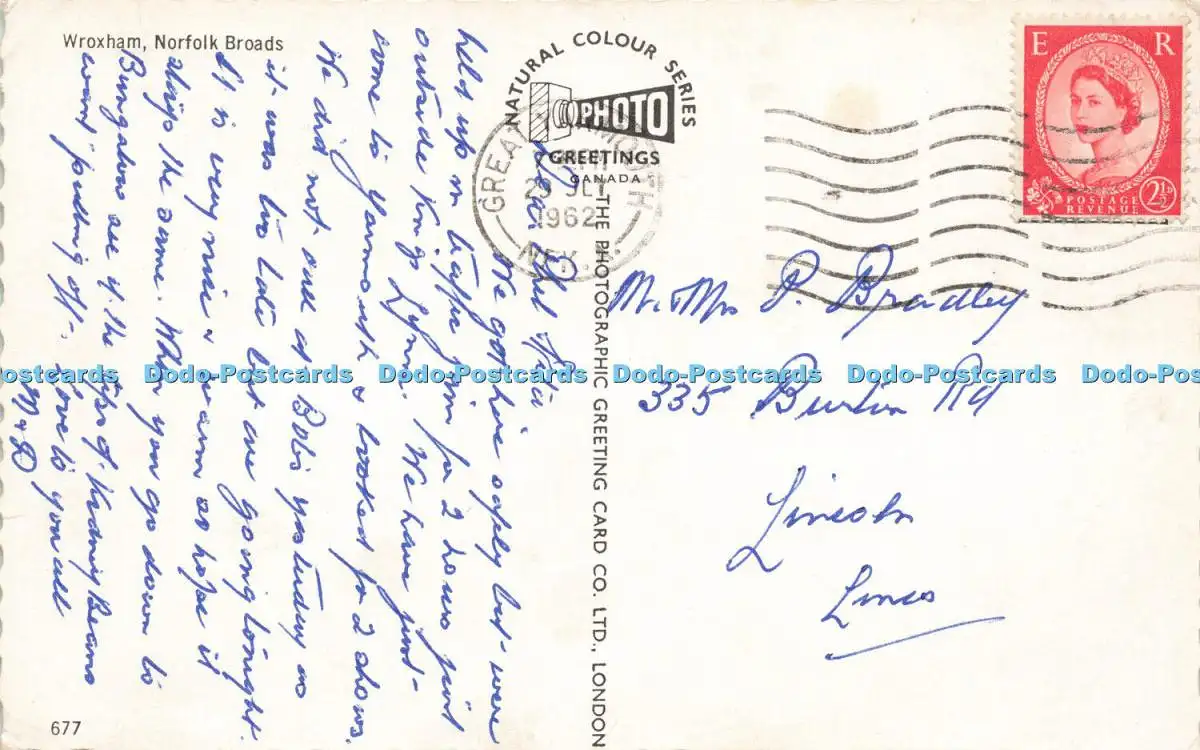 Wroxham, Norfolk Broads
NATURAL COLOUR SERIES
PHOTO
GREETINGS
CANADA
THE PHOTOGRAPHIC GREETING CARD CO. LTD., LONDON
GREAT YARMOUTH
1962
E R
POSTAGE
REVENUE
2½
Dear
We got here safely but were
held up in traffic jam for 2 hours just
outside Kings Lynn. We have just
come to Yarmouth & booked for 2 shows.
We did not call at Bob's yesterday as
it was too late but are going tonight.
It is very nice & warm so hope it
stays the same. When you go down to
Bungalow see if the tips of Kidney Beans
want "pulling off". Love to you all
M & D
Mr & Mrs P. Bradley
335 Burton Rd
Lincoln
Lincs
677
Dodo-Postcards Dodo-Postcards Dodo-Postcards Dodo-Postcards Dodo-Postcards Dodo-Postcards